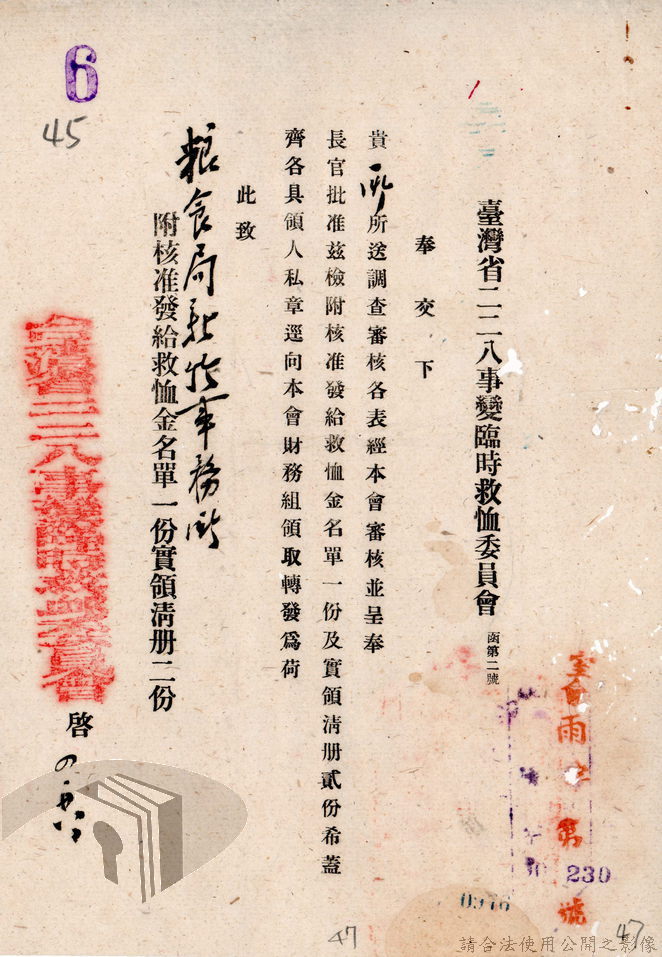 臺灣省二二八事變臨時救恤委員會 函第二號
奉交下
貴所送調查審核各表經本會審核並呈奉
長官批准茲檢附核准發給救恤金名單一份及實領清册貳份希蓋
齊各具領人私章逕向本會財務組領取轉發爲荷
此致
粮食局新竹事務所
附核准發給救恤金名單一份實領清册二份
臺灣省二二八事變臨時救恤委員會 啓
6
45
雨 第 號
230
47
47
請合法使用公開之影像